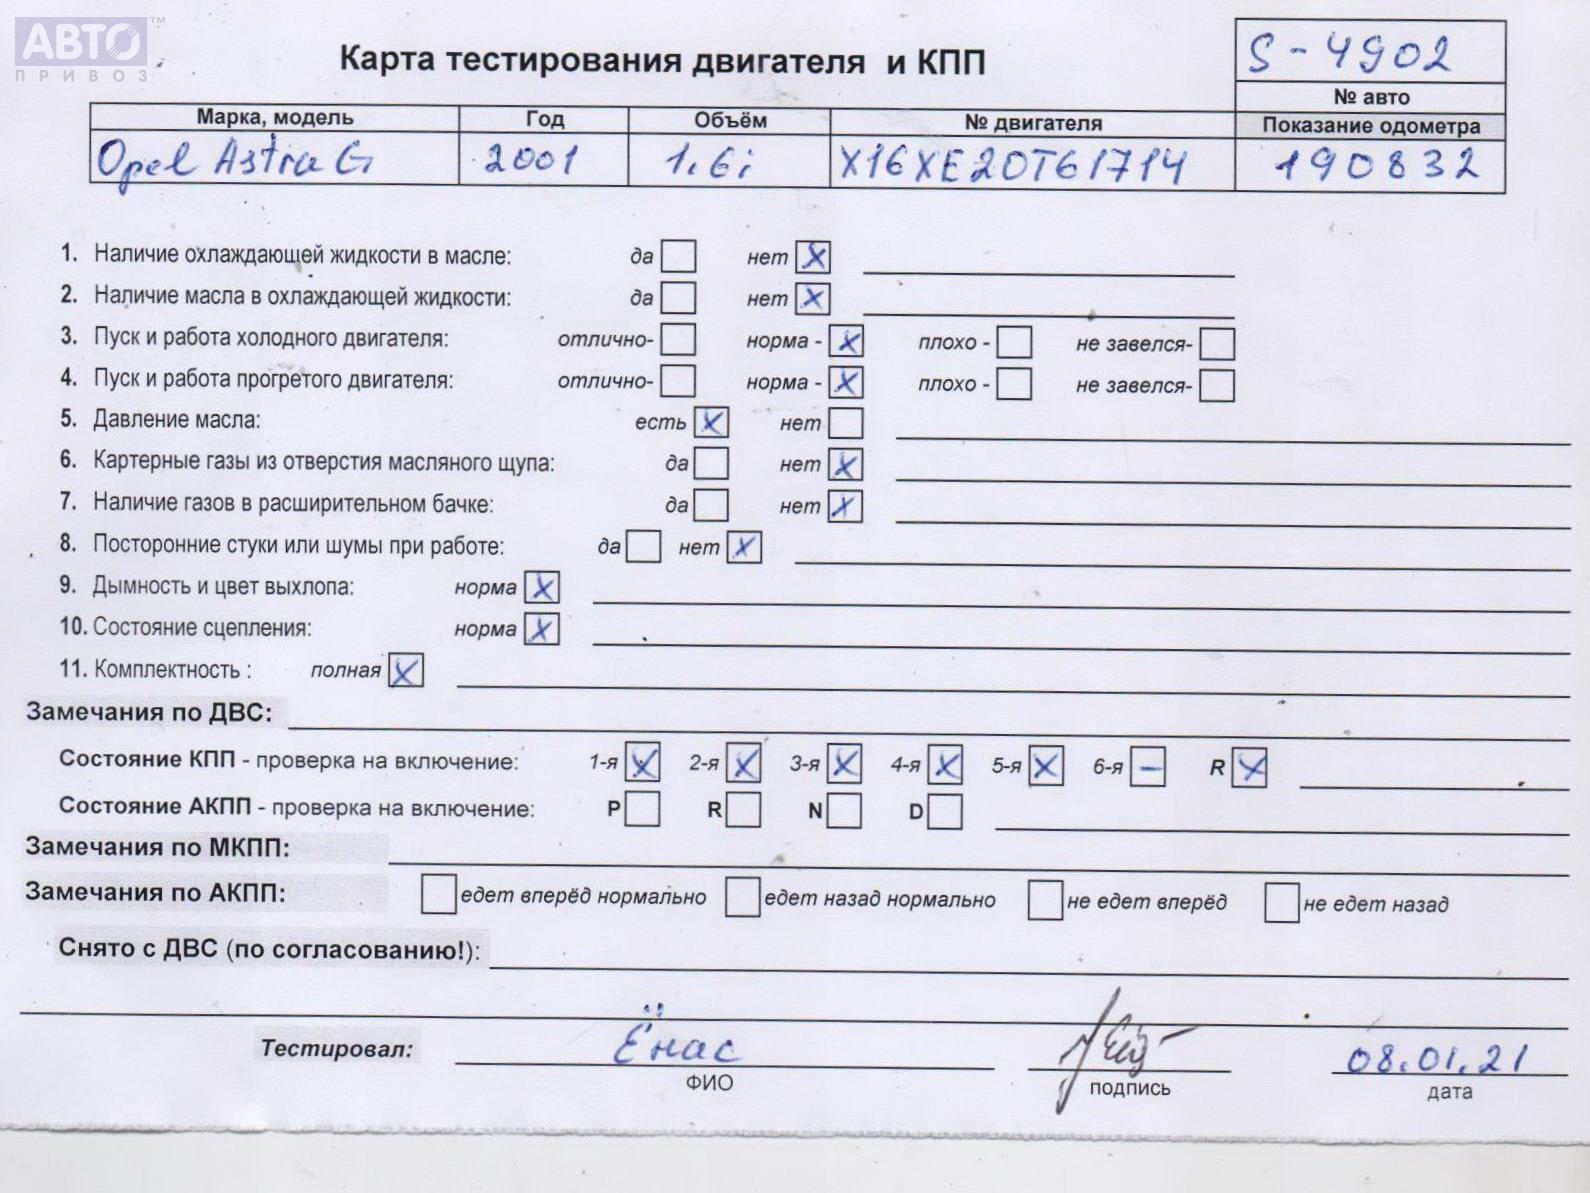 АВТО™
ПРИВОЗ
Карта тестирования двигателя и КПП
S-4902
№ авто
Марка, модель Год Объём № двигателя Показание одометра
Opel Astra G 2001 1.6i X16XE20T61714 190832
1. Наличие охлаждающей жидкости в масле: да нет X
2. Наличие масла в охлаждающей жидкости: да нет X
3. Пуск и работа холодного двигателя: отлично- норма - X плохо - не завелся-
4. Пуск и работа прогретого двигателя: отлично- норма - X плохо - не завелся-
5. Давление масла: есть X нет
6. Картерные газы из отверстия масляного щупа: да нет X
7. Наличие газов в расширительном бачке: да нет X
8. Посторонние стуки или шумы при работе: да нет X
9. Дымность и цвет выхлопа: норма X
10. Состояние сцепления: норма X
11. Комплектность : полная X
Замечания по ДВС:
Состояние КПП - проверка на включение: 1-я X 2-я X 3-я X 4-я X 5-я X 6-я – R X
Состояние АКПП - проверка на включение: P R N D
Замечания по МКПП:
Замечания по АКПП: едет вперёд нормально едет назад нормально не едет вперёд не едет назад
Снято с ДВС (по согласованию!):
Тестировал: Ёнас 08.01.21
ФИО подпись дата